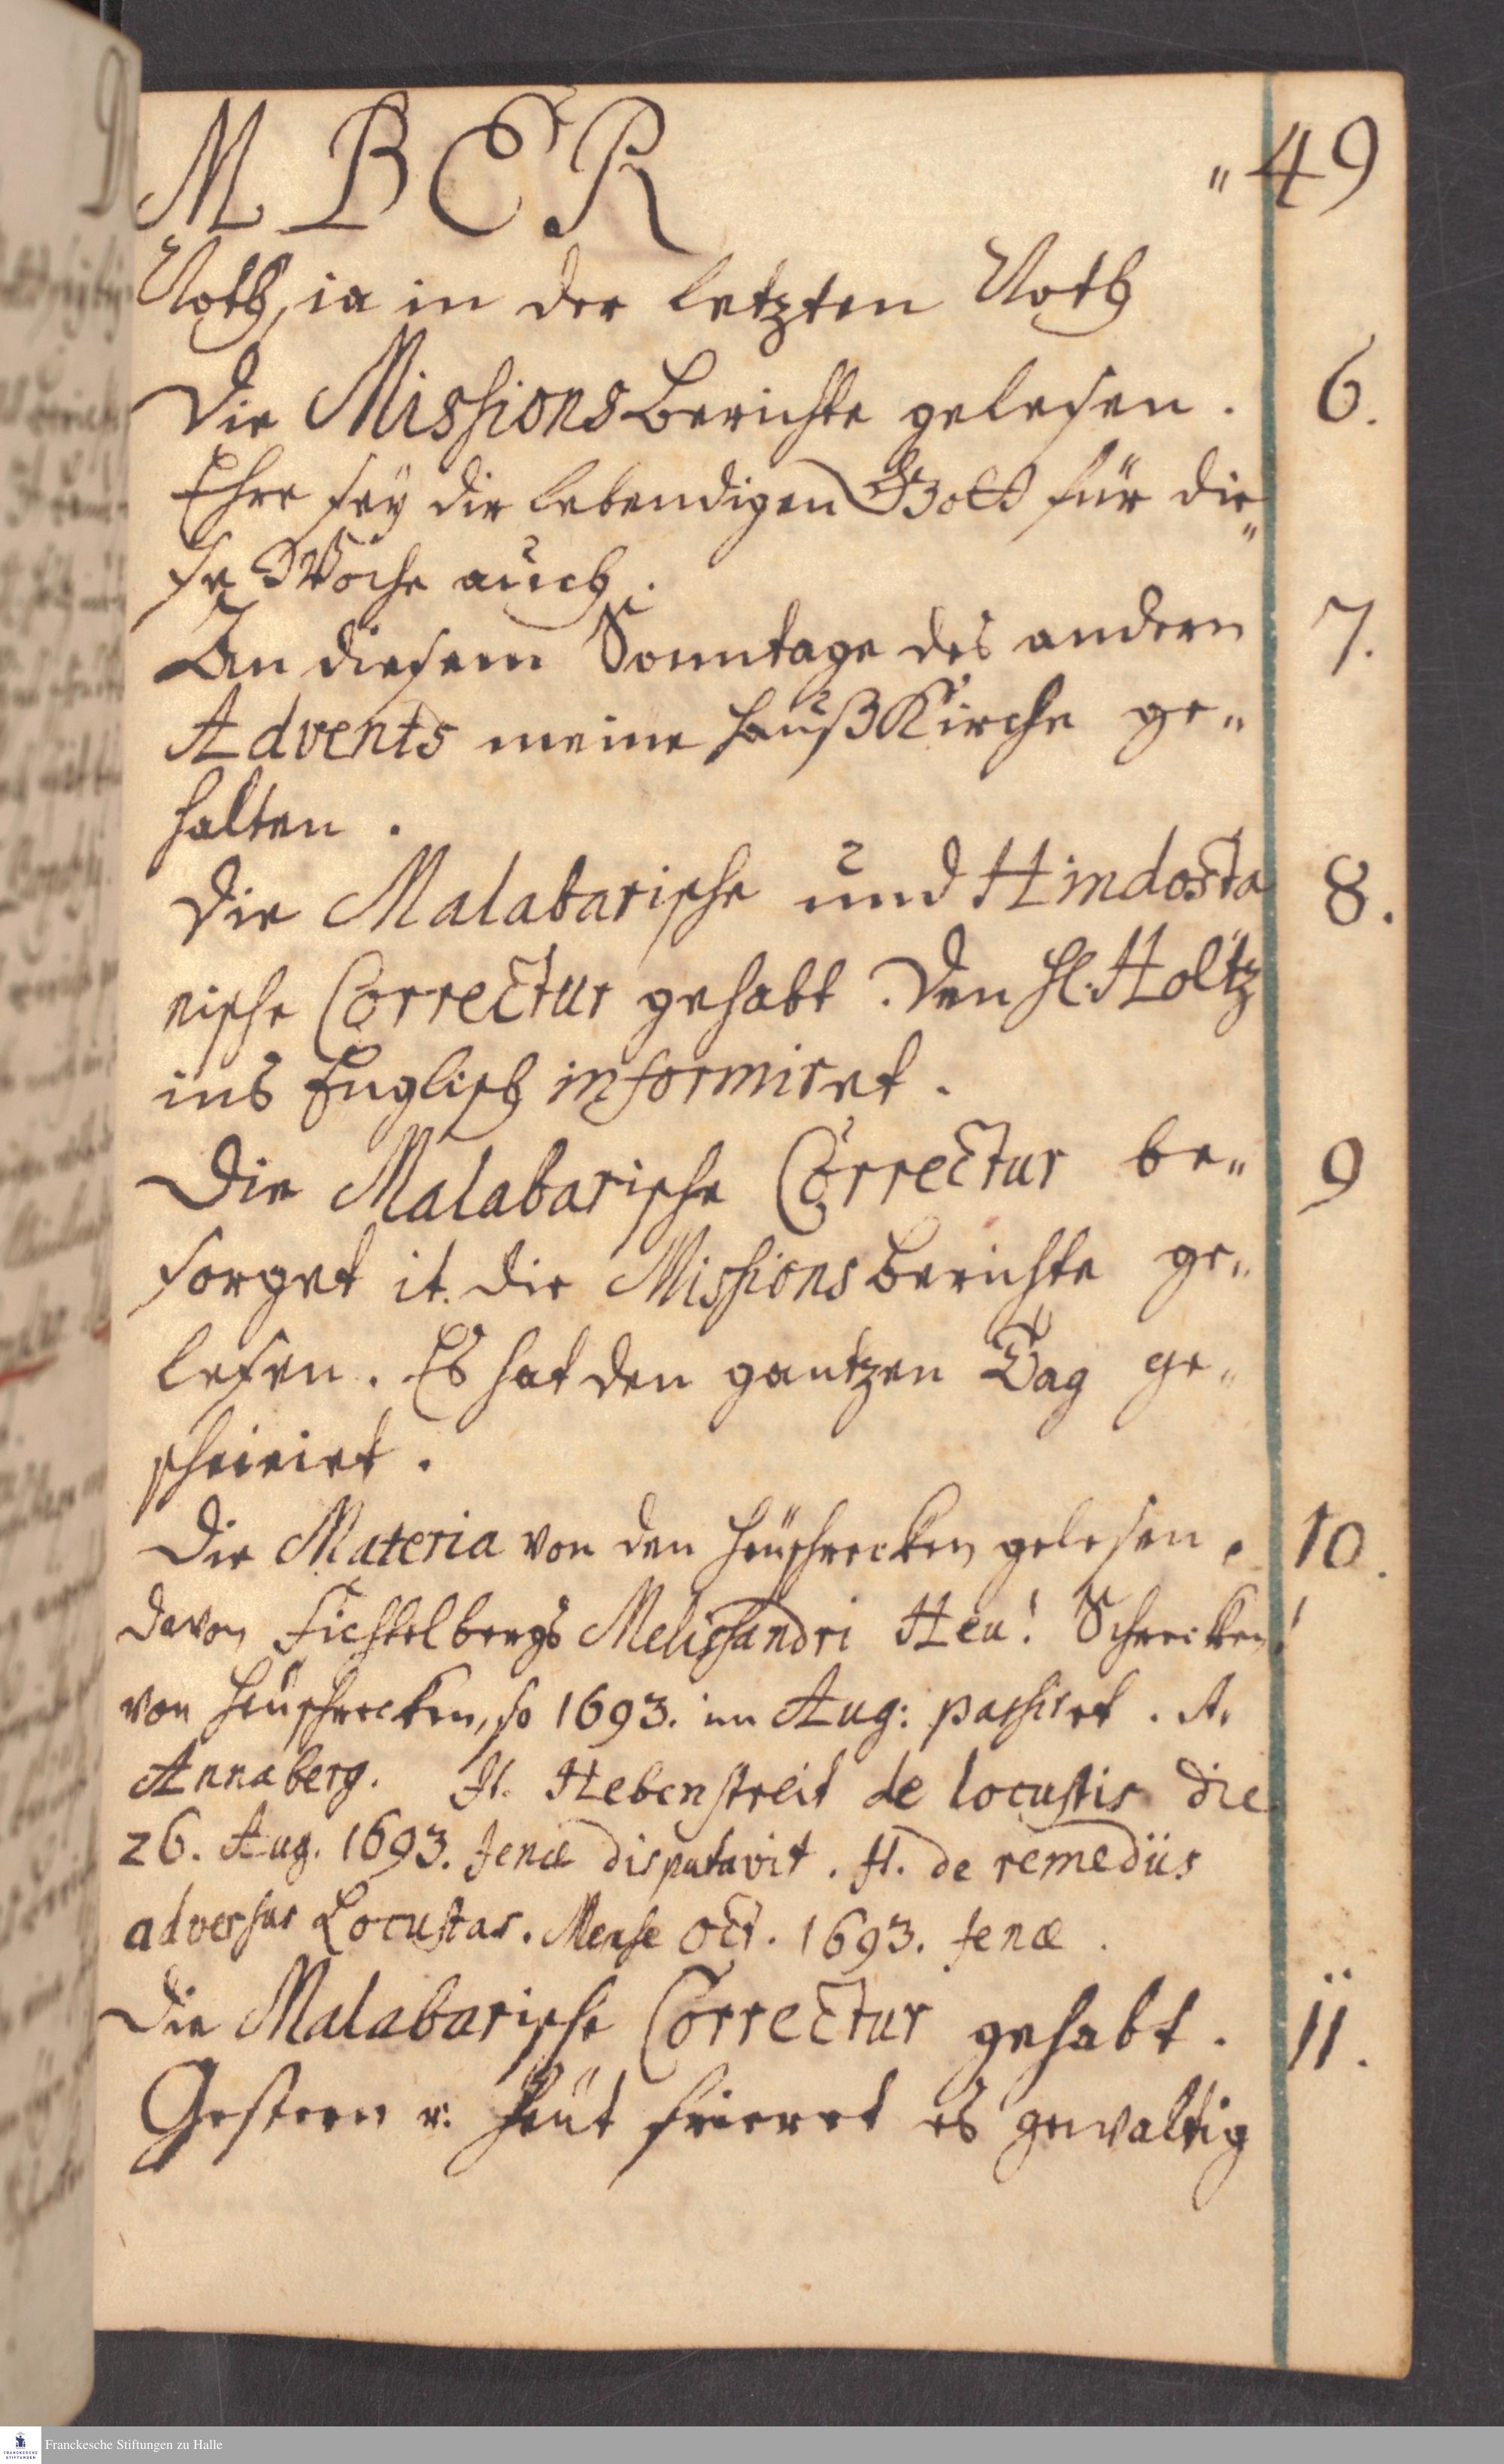 M B E R " 49
Noth, ia in der letzten Noth
Die Missions berichte gelesen. 6.
Ehre sey dir lebendigen Gott für die„
se Woche auch.
An diesem Sonntage des andern 7.
Advents meine HaußKirche ge„
halten.
Die Malabarische und Hindosta 8.
nische Correctur gehabt. Den H. Holtz
ins Englisch informiret.
Die Malabarische Correctur be„ 9
sorget it. die Missions berichte ge„
lesen. Es hat den gantzen Tag ge„
schneiet.
Die Materia von den Heüschrecken gelesen. 10.
davon Fichtelbergs Melissandri Heu! Schrecken!
von Heuschrecken, so 1693. im Aug: passiret. A.
Annaberg. It. Hebenstreit de locustis die
26. Aug. 1693. Jenæ disputavit. It. de remediis
adversus Locustas. Mense Oct. 1693. Jenæ.
Die Malabarische Correctur gehabt. 11.
Gestern u. heüt frieret es gewaltig
Franckesche Stiftungen zu Halle